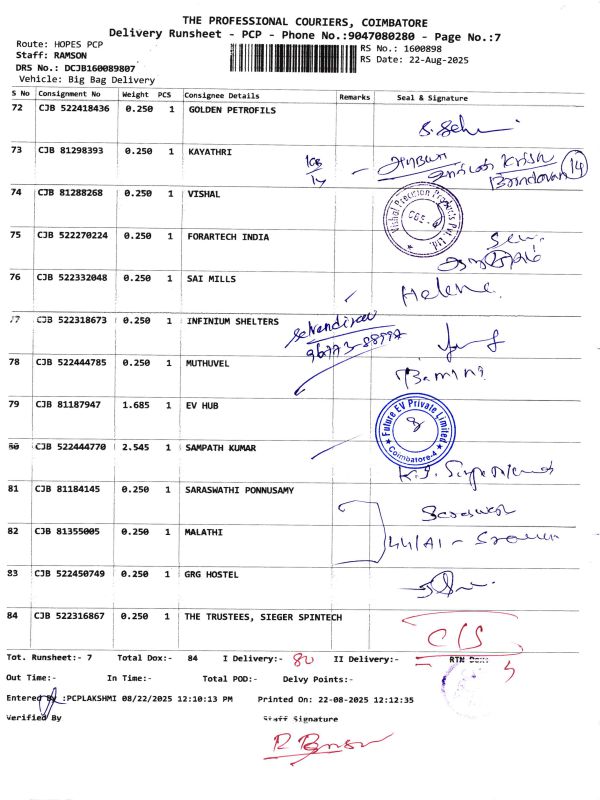 THE PROFESSIONAL COURIERS, COIMBATORE
Delivery Runsheet - PCP - Phone No.:9047080280 - Page No.:7
Route: HOPES PCP
RS No.: 1600898
Staff: RAMSON
RS Date: 22-Aug-2025
DRS No.: DCJB160089807
Vehicle: Big Bag Delivery
S No Consignment No Weight PCS Consignee Details Remarks Seal & Signature
72 CJB 522418436 0.250 1 GOLDEN PETROFILS
73 CJB 81298393 0.250 1 KAYATHRI
Krisn
Brindovan 14
74 CJB 81288268 0.250 1 VISHAL
Vishal Precision Products Pvt. Ltd.
CBE-4
75 CJB 522270224 0.250 1 FORARTECH INDIA
76 CJB 522332048 0.250 1 SAI MILLS
Helene
77 CJB 522318673 0.250 1 INFINIUM SHELTERS
78 CJB 522444785 0.250 1 MUTHUVEL
79 CJB 81187947 1.685 1 EV HUB
Future EV Private Limited
Coimbatore-4
80 CJB 522444770 2.545 1 SAMPATH KUMAR
81 CJB 81184145 0.250 1 SARASWATHI PONNUSAMY
82 CJB 81355005 0.250 1 MALATHI
44/A1 -
83 CJB 522450749 0.250 1 GRG HOSTEL
84 CJB 522316867 0.250 1 THE TRUSTEES, SIEGER SPINTECH
C/S
Tot. Runsheet:- 7 Total Dox:- 84 I Delivery:- 80 II Delivery:- RTN Dox:
Out Time:- In Time:- Total POD:- Delvy Points:-
Entered By :PCPLAKSHMI 08/22/2025 12:10:13 PM Printed On: 22-08-2025 12:12:35
Verified By Staff Signature